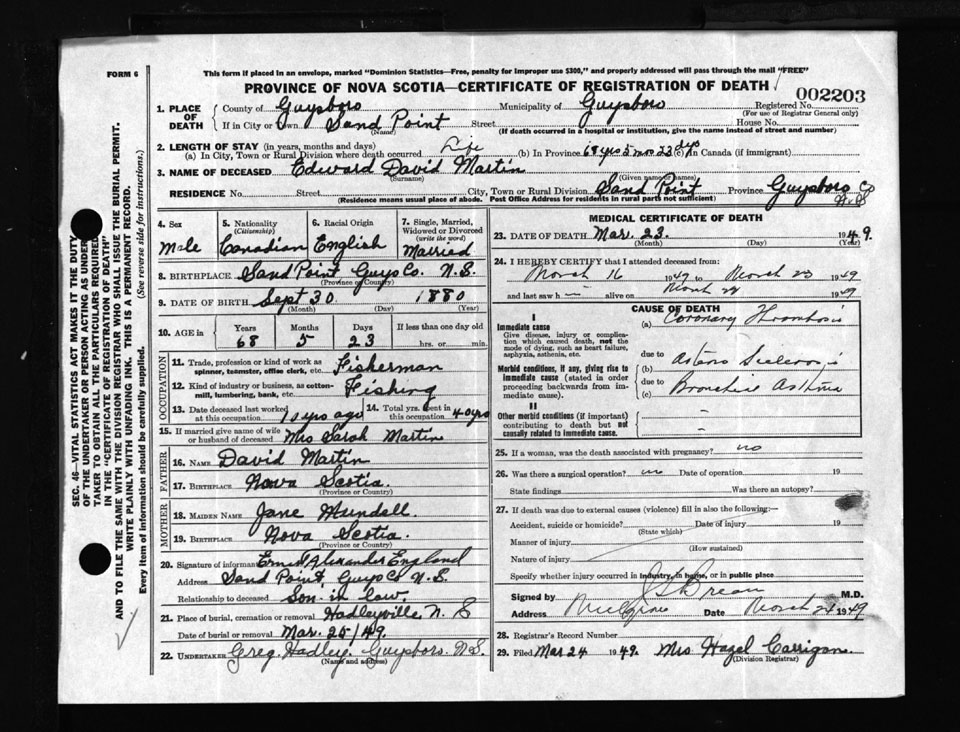 FORM 6
This form if placed in an envelope, marked "Dominion Statistics—Free, penalty for improper use $300," and properly addressed will pass through the mail "FREE"
PROVINCE OF NOVA SCOTIA—CERTIFICATE OF REGISTRATION OF DEATH
002203
1. PLACE OF DEATH County of Guysboro Municipality of Guysboro Registered No.
(For use of Registrar General only)
If in City or Town Sand Point Street House No.
(Name) (If death occurred in a hospital or institution, give the name instead of street and number)
2. LENGTH OF STAY (in years, months and days)
(a) In City, Town or Rural Division where death occurred Life (b) In Province 68 yrs 5 mos 23 dys (c) In Canada (if immigrant)
3. NAME OF DECEASED Edward David Martin
(Surname) (Given name or names)
RESIDENCE No. Street City, Town or Rural Division Sand Point Province Guysboro Co N.S
(Residence means usual place of abode. Post Office Address for residents in rural parts not sufficient)
4. Sex Male
5. Nationality (Citizenship) Canadian
6. Racial Origin English
7. Single, Married, Widowed or Divorced (write the word) Married
8. BIRTHPLACE Sand Point Guys Co. N.S.
(Province or Country)
9. DATE OF BIRTH Sept 30 1880
(Month) (Day) (Year)
10. AGE in Years Months Days If less than one day old
68 5 23 hrs. or min.
OCCUPATION
11. Trade, profession or kind of work as spinner, teamster, office clerk, etc. Fisherman
12. Kind of industry or business, as cotton-mill, lumbering, bank, etc. Fishing
13. Date deceased last worked at this occupation 10 yrs ago 14. Total yrs. spent in this occupation 40 yrs
15. If married give name of wife or husband of deceased Mrs Sarah Martin
FATHER
16. NAME David Martin
17. BIRTHPLACE Nova Scotia.
(Province or Country)
MOTHER
18. MAIDEN NAME Jane Mundell
19. BIRTHPLACE Nova Scotia.
(Province or Country)
20. Signature of informant Ernest Alexander England
Address Sand Point, Guys Co N.S.
Relationship to deceased Son in law
21. Place of burial, cremation or removal Hadleyville N. S
Date of burial or removal Mar. 25/49.
22. UNDERTAKER Greg. Hadley. Guysboro. N.S.
(Name and address)
MEDICAL CERTIFICATE OF DEATH
23. DATE OF DEATH Mar. 23. 1949.
(Month) (Day) (Year)
24. I HEREBY CERTIFY that I attended deceased from:
March 16 1949 to March 23 1949
and last saw h alive on March 1949
CAUSE OF DEATH
I
Immediate cause
Give disease, injury or complication which caused death, not the mode of dying, such as heart failure, asphyxia, asthenia, etc.
(a) Coronary Thrombosis
due to
Morbid conditions, if any, giving rise to immediate cause (stated in order proceeding backwards from immediate cause).
(b)
due to
(c) Asthma
II
Other morbid conditions (if important) contributing to death but not causally related to immediate cause.
25. If a woman, was the death associated with pregnancy? no
26. Was there a surgical operation? no Date of operation 19
State findings Was there an autopsy?
27. If death was due to external causes (violence) fill in also the following:—
Accident, suicide or homicide? Date of injury 19
(State which)
Manner of injury
(How sustained)
Nature of injury
Specify whether injury occurred in industry, in home, or in public place
Signed by M.D.
Address Mulgrave Date March 1949
28. Registrar's Record Number
29. Filed Mar 24 1949. Mrs Hazel Carrigan.
(Division Registrar)
SEC. 46—VITAL STATISTICS ACT MAKES IT THE DUTY
OF THE UNDERTAKER OR PERSON ACTING AS UNDER-
TAKER TO OBTAIN ALL THE PARTICULARS REQUIRED
IN THE "CERTIFICATE OF REGISTRATION OF DEATH"
AND TO FILE THE SAME WITH THE DIVISION REGISTRAR WHO SHALL ISSUE THE BURIAL PERMIT.
WRITE PLAINLY WITH UNFADING INK. THIS IS A PERMANENT RECORD.
Every item of information should be carefully supplied. (See reverse side for instructions.)